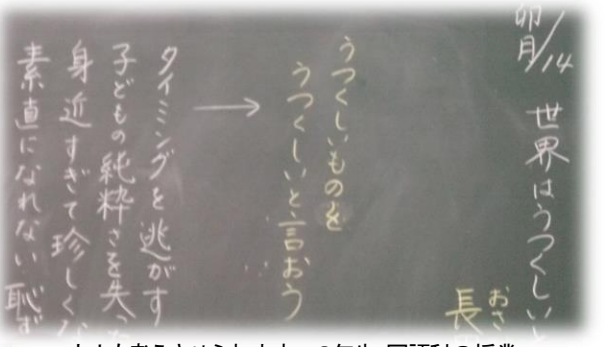 卯月/14
世界はうつくしいと
おさ
長
うつくしいものを
うつくしいと言おう
→
タイミングを逃がす
子どもの純粋さを失っ
身近すぎて珍しくな
素直になれない 恥ず